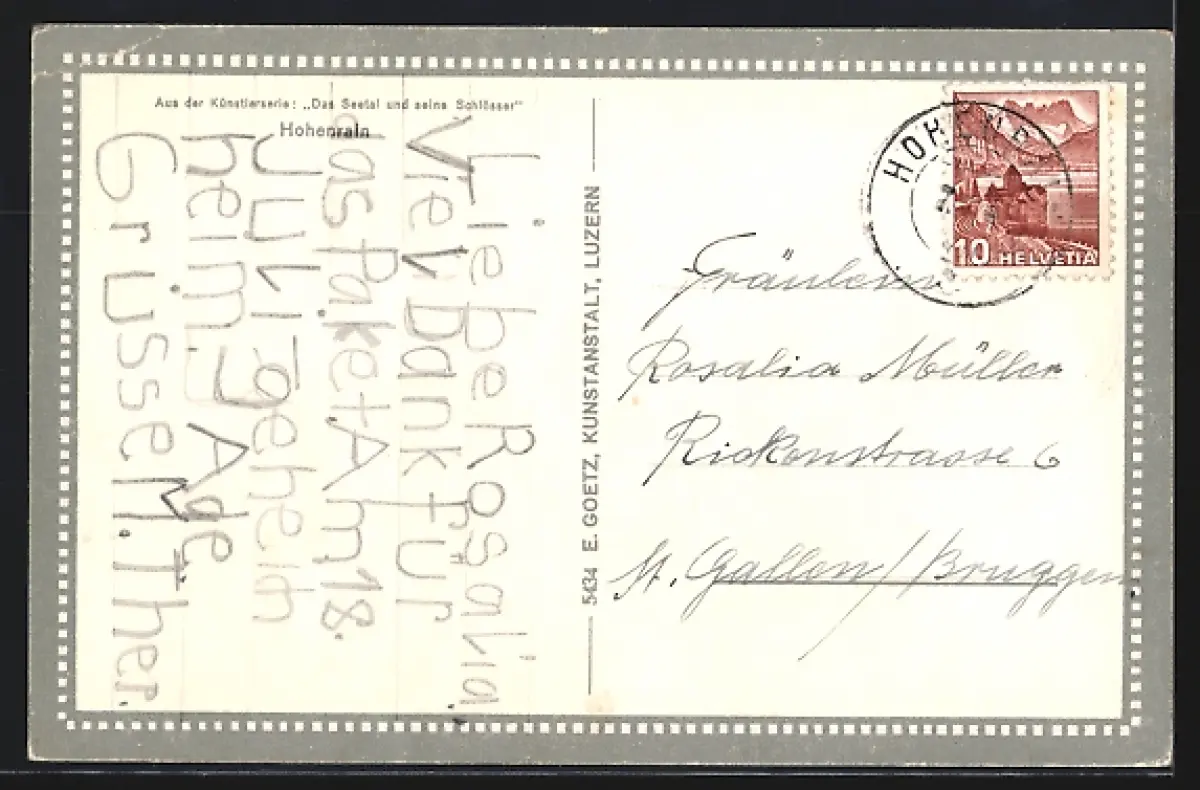 Aus der Künstlerserie: „Das Seetal und seine Schlösser"
Hohenrain
Liebe Rosalia.
Viel Dank für
das Paket Am 18.
Juli gehe ich
heim. Ade
Grüsse M. Ther.
5434 E. GOETZ, KUNSTANSTALT, LUZERN
HOHENR
10 HELVETIA
Fräulein
Rosalia Müller
Rickenstrasse 6
St. Gallen / Bruggen